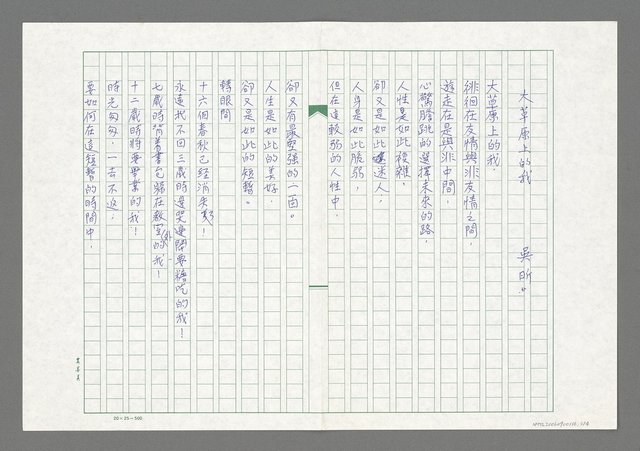 大草原上的我　　　吳昕。
大草原上的我，
徘徊在友情與非友情之間，
遊走在是與非中間，
心驚膽跳的選擇未來的路，
人性是如此複雜，
卻又是如此迷人，
人身是如此脆弱，
但在這軟弱的人性中，
卻又有最堅強的一面。
人生是如此的美好，
卻又是如此的短暫。
轉眼間
十六個春秋已經消失
永遠找不回三歲時還哭鬧要糖吃的我！
七歲時背著書包躲在教室的我！
十二歲時將要畢業的我！
時光匆匆，一去不返，
要如何在這短暫的時間中，
20×25=500